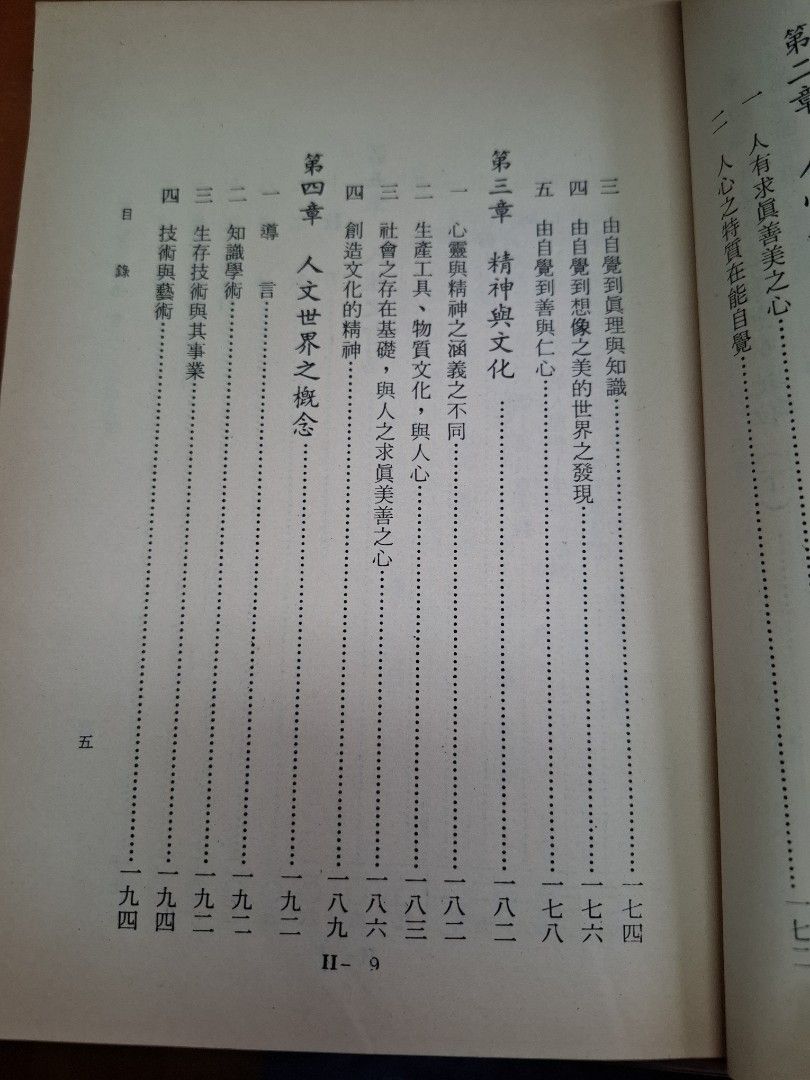 第二章
一 人有求眞善美之心……
二 人心之特質在能自覺……一七二
三 由自覺到眞理與知識……一七四
四 由自覺到想像之美的世界之發現……一七六
五 由自覺到善與仁心……一七八
第三章 精神與文化……一八二
一 心靈與精神之涵義之不同……一八二
二 生產工具、物質文化，與人心……一八三
三 社會之存在基礎，與人之求眞美善之心……一八六
四 創造文化的精神……一八九
第四章 人文世界之概念……一九二
一 導言……一九二
二 知識學術……一九二
三 生存技術與其事業……一九四
四 技術與藝術……一九四
目錄
五
II-9